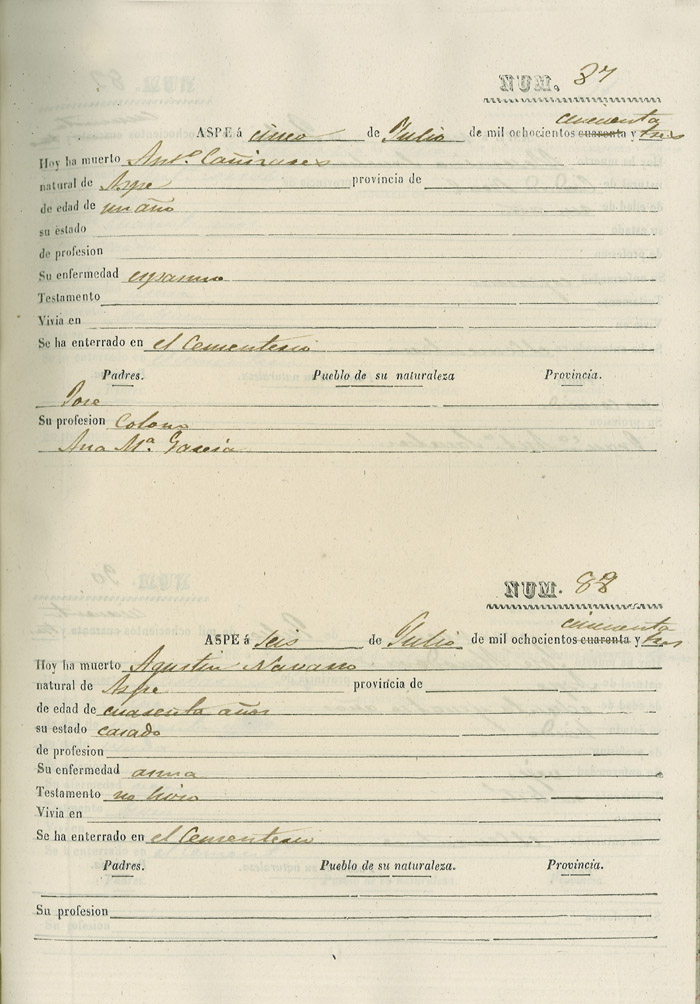 NUM. 87
cincuenta
ASPE á cinco de Julio de mil ochocientos cuarenta y tres
Hoy ha muerto Ant.º Cañizares
natural de Aspe provincia de
de edad de un año
su estado
de profesion
Su enfermedad espasmo
Testamento
Vivia en
Se ha enterrado en el Cementerio
Padres. Pueblo de su naturaleza Provincia.
Jose
Su profesion Colono
Ana M.ª Garcia
NUM. 88
cincuenta
ASPE á seis de Julio de mil ochocientos cuarenta y tres
Hoy ha muerto Agustin Navarro
natural de Aspe provincia de
de edad de cuarenta años
su estado casado
de profesion
Su enfermedad asma
Testamento no hizo
Vivia en
Se ha enterrado en el Cementerio
Padres. Pueblo de su naturaleza. Provincia.
Su profesion